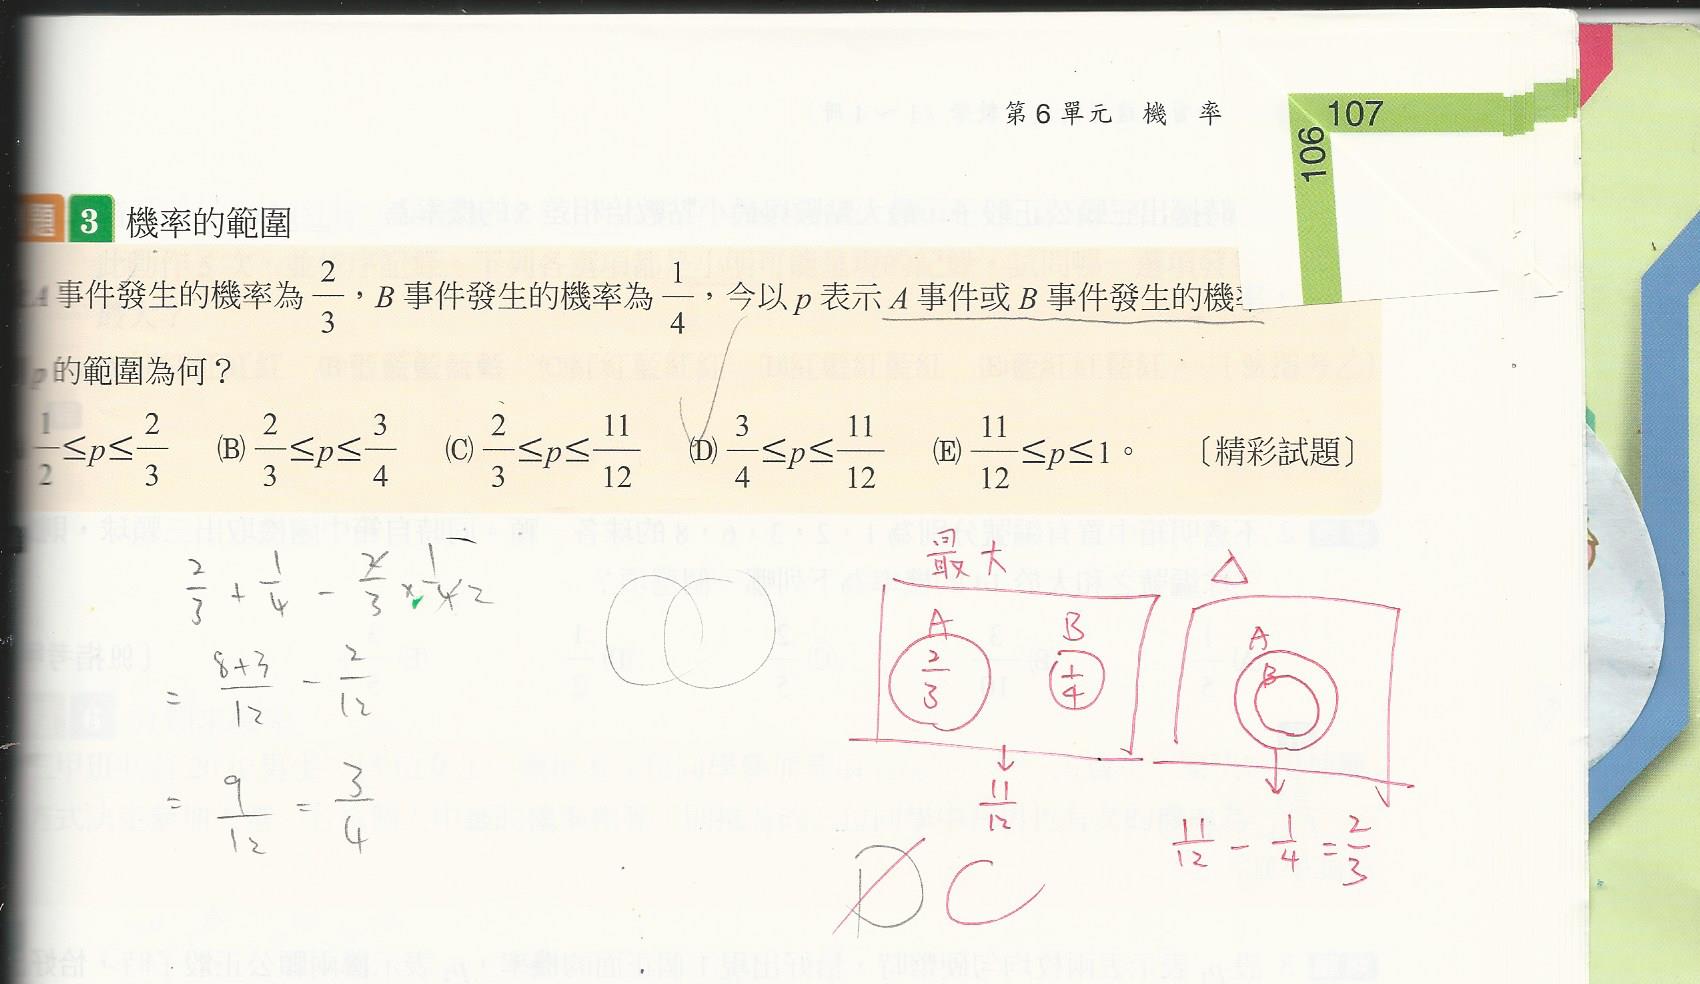 第6單元 機 率
107
106
題 3 機率的範圍
A 事件發生的機率為 2/3，B 事件發生的機率為 1/4，今以 p 表示 A 事件或 B 事件發生的機
p 的範圍為何？
1/2≤p≤2/3 (B) 2/3≤p≤3/4 (C) 2/3≤p≤11/12 (D) 3/4≤p≤11/12 (E) 11/12≤p≤1。 〔精彩試題〕
2/3 + 1/4 - 2/3 × 1/4 2
= 8+3/12 - 2/12
= 9/12 = 3/4
最大
A 2/3 B 1/4
11/12
△
A
B
11/12 - 1/4 = 2/3
D C